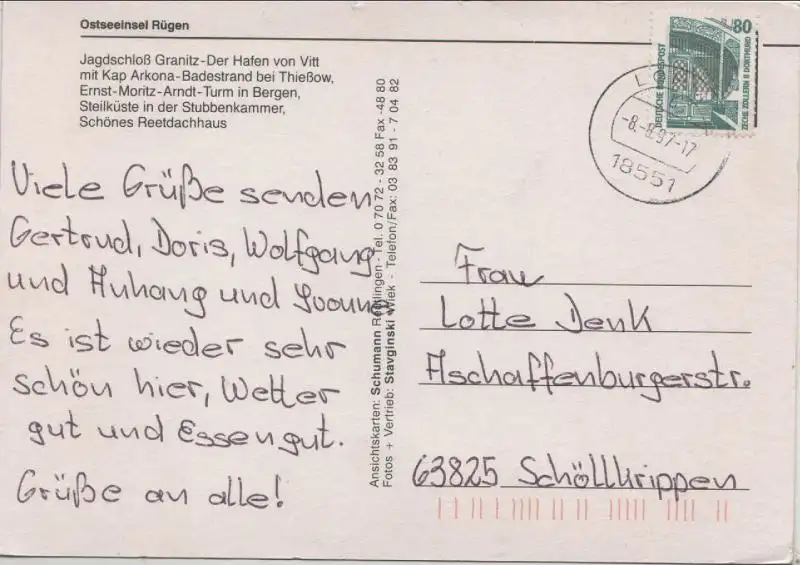 Ostseeinsel Rügen
Jagdschloß Granitz-Der Hafen von Vitt
mit Kap Arkona-Badestrand bei Thießow,
Ernst-Moritz-Arndt-Turm in Bergen,
Steilküste in der Stubbenkammer,
Schönes Reetdachhaus
Viele Grüße senden
Gertrud, Doris, Wolfgang
und Anhang und
Es ist wieder sehr
schön hier, Wetter
gut und Essen gut.
Grüße an alle!
Ansichtskarten: Schumann Reutlingen-Tel. 0 70 72 - 32 58 Fax -48 80
Fotos + Vertrieb: Stavginski Wiek - Telefon/Fax: 03 83 91 - 7 04 82
80
DEUTSCHE BUNDESPOST
ZECHE ZOLLERN II DORTMUND
-8.-8.97-17
18551
Frau
Lotte Denk
Aschaffenburgerstr.
63825 Schöllkrippen